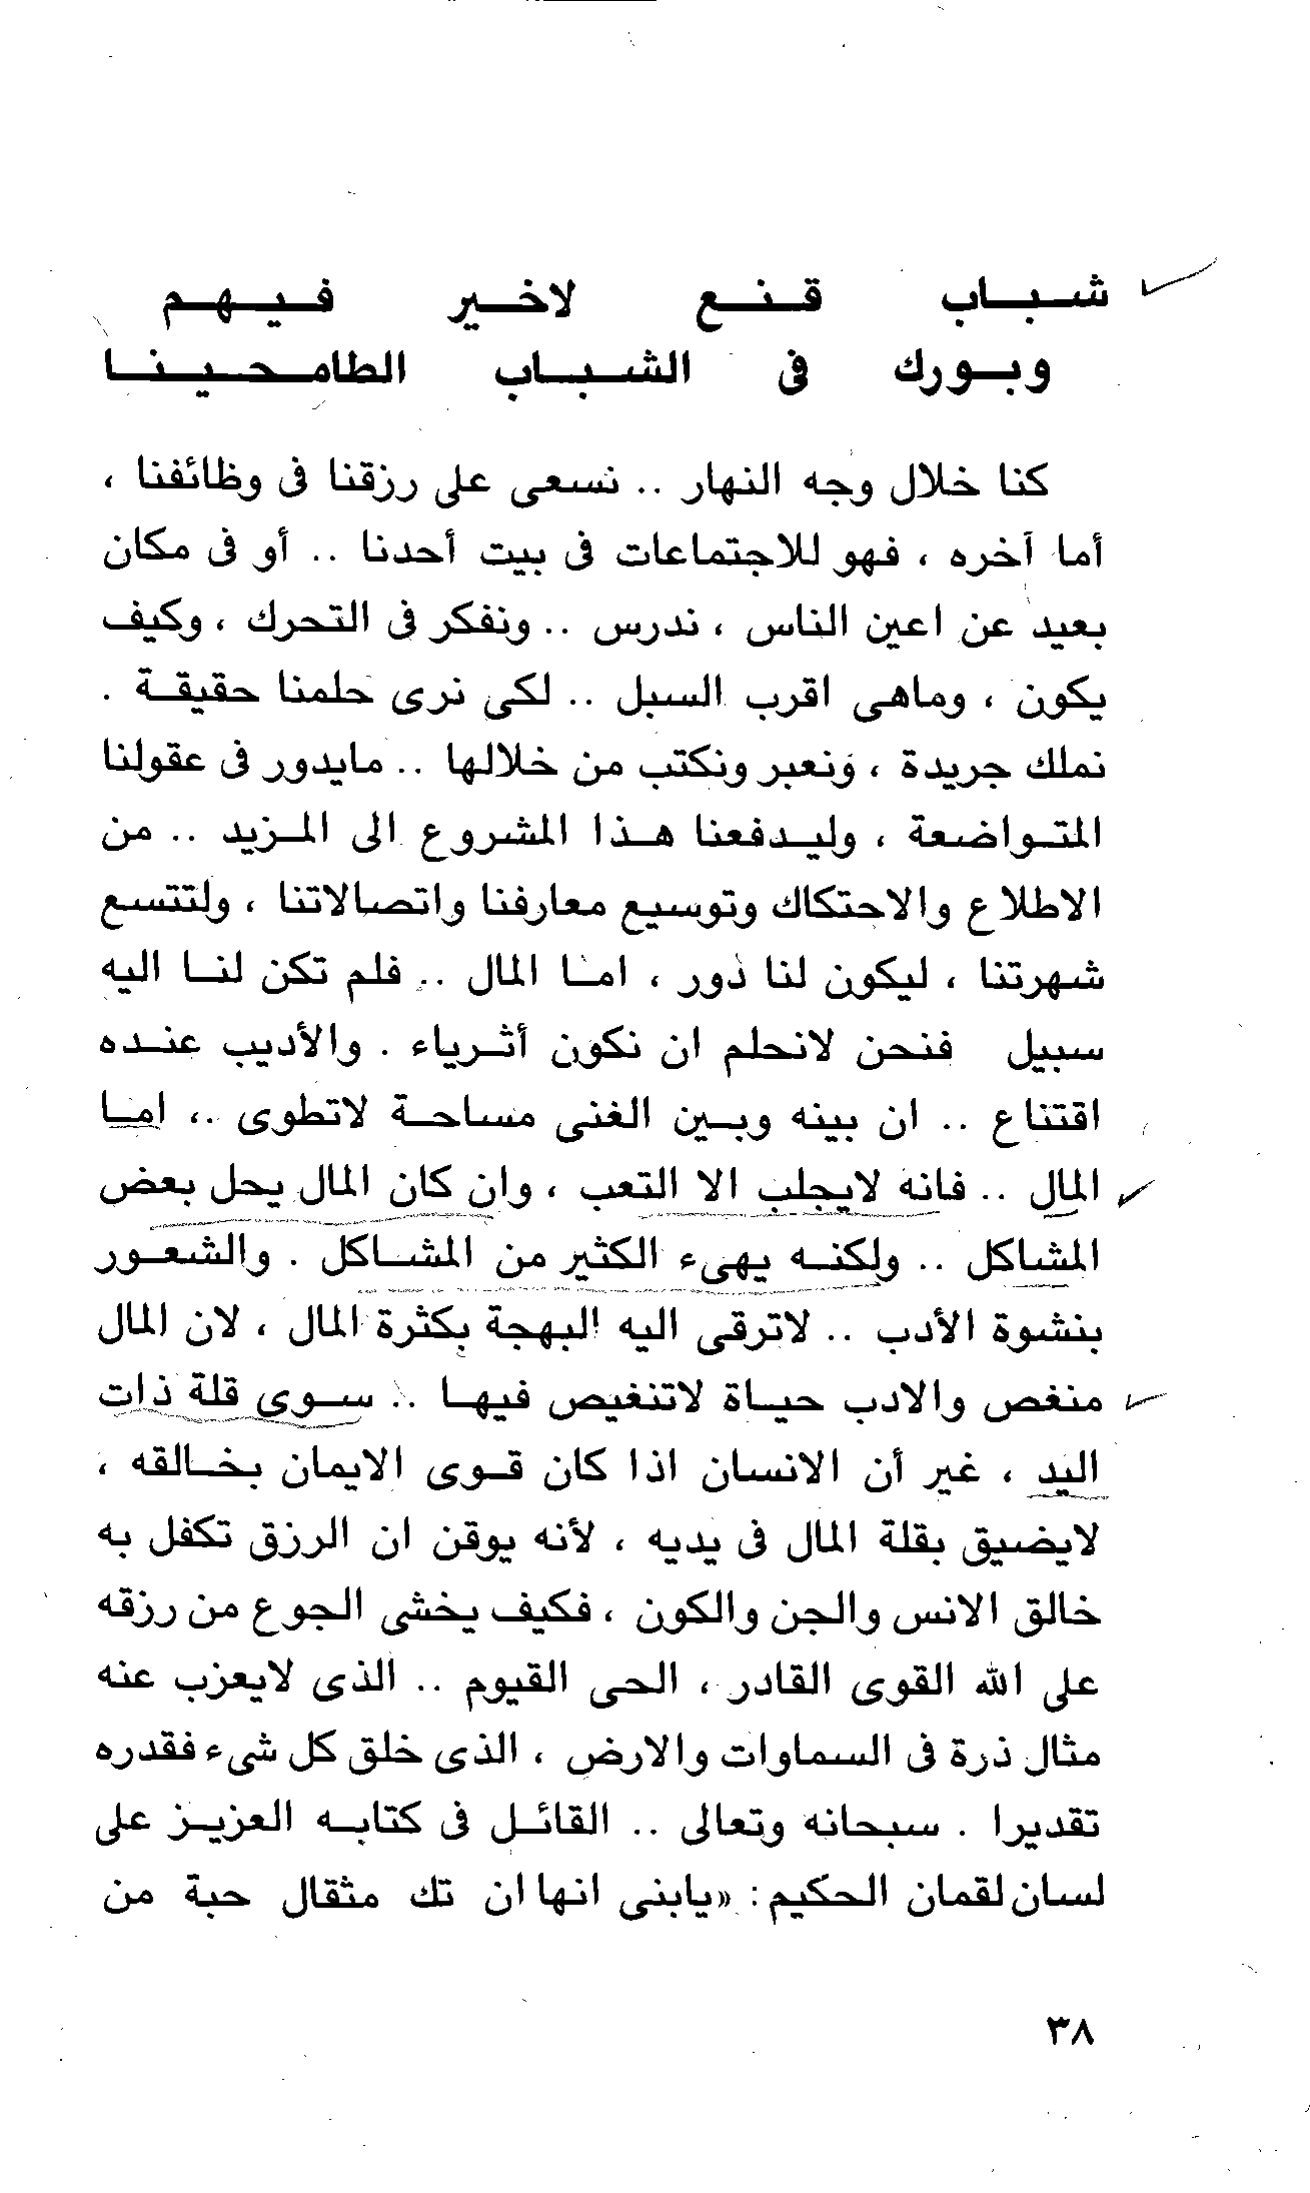 شباب قنع لاخير فيهم
وبورك فى الشباب الطامحينا
كنا خلال وجه النهار .. نسعى على رزقنا فى وظائفنا ،
أما آخره ، فهو للاجتماعات فى بيت أحدنا .. أو فى مكان
بعيد عن اعين الناس ، ندرس .. ونفكر فى التحرك ، وكيف
يكون ، وماهى اقرب السبل .. لكى نرى حلمنا حقيقة .
نملك جريدة ، ونعبر ونكتب من خلالها .. مايدور فى عقولنا
المتواضعة ، وليدفعنا هذا المشروع الى المزيد .. من
الاطلاع والاحتكاك وتوسيع معارفنا واتصالاتنا ، ولتتسع
شهرتنا ، ليكون لنا دور ، اما المال .. فلم تكن لنا اليه
سبيل فنحن لانحلم ان نكون أثرياء . والأديب عنده
اقتناع .. ان بينه وبين الغنى مساحة لاتطوى .، اما
المال .. فانه لايجلب الا التعب ، وان كان المال يحل بعض
المشاكل .. ولكنه يهىء الكثير من المشاكل . والشعور
بنشوة الأدب .. لاترقى اليه البهجة بكثرة المال ، لان المال
منغص والادب حياة لاتنغيص فيها .. سوى قلة ذات
اليد ، غير أن الانسان اذا كان قوى الايمان بخالقه ،
لايضيق بقلة المال فى يديه ، لأنه يوقن ان الرزق تكفل به
خالق الانس والجن والكون ، فكيف يخشى الجوع من رزقه
على الله القوى القادر ، الحى القيوم .. الذى لايعزب عنه
مثال ذرة فى السماوات والارض ، الذى خلق كل شىء فقدره
تقديرا . سبحانه وتعالى .. القائل فى كتابه العزيز على
لسان لقمان الحكيم : «يابنى انها ان تك مثقال حبة من
٣٨